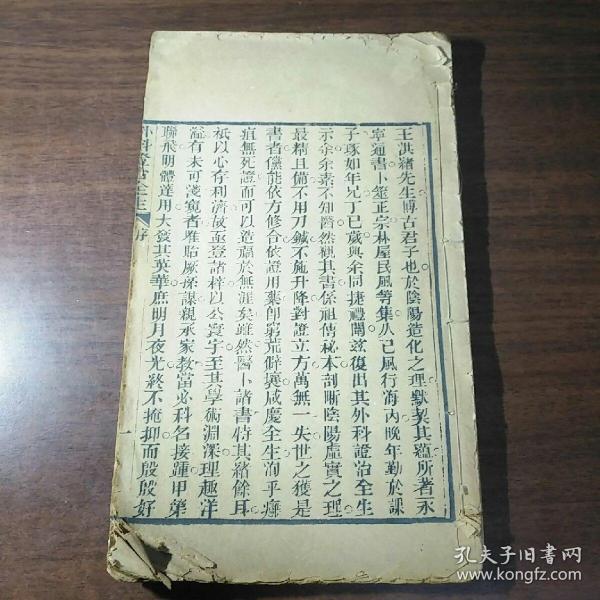 王洪緒先生博古君子也於陰陽造化之理默契其蘊所著永
寧通書卜筮正宗林屋民風等集久已風行海內晚年勤於課
子琢如年兄丁巳歲與余同捷禮闈茲復出其外科證治全生
示余余素不知醫然觀其書係祖傳秘本剖晰陰陽虛實之理
最精且備不用刀鍼不施升降對證立方萬無一失世之獲是
書者儻能依方修合依證用藥即窮荒僻壤咸慶全生洵乎癰
疽無死證而可以造福於無涯矣雖然醫卜諸書特其緒餘耳
祇以心存利濟故亟登諸梓以公寰宇至其學術淵深理趣洋
溢有未可淺窺者雅貽厥孫謀親承家教當必科名接踵甲第
聯飛明體達用大發其英華庶明月夜光終不掩抑而殷殷好
外科證治全生 序
一
孔夫子旧书网
www.kongfz.com